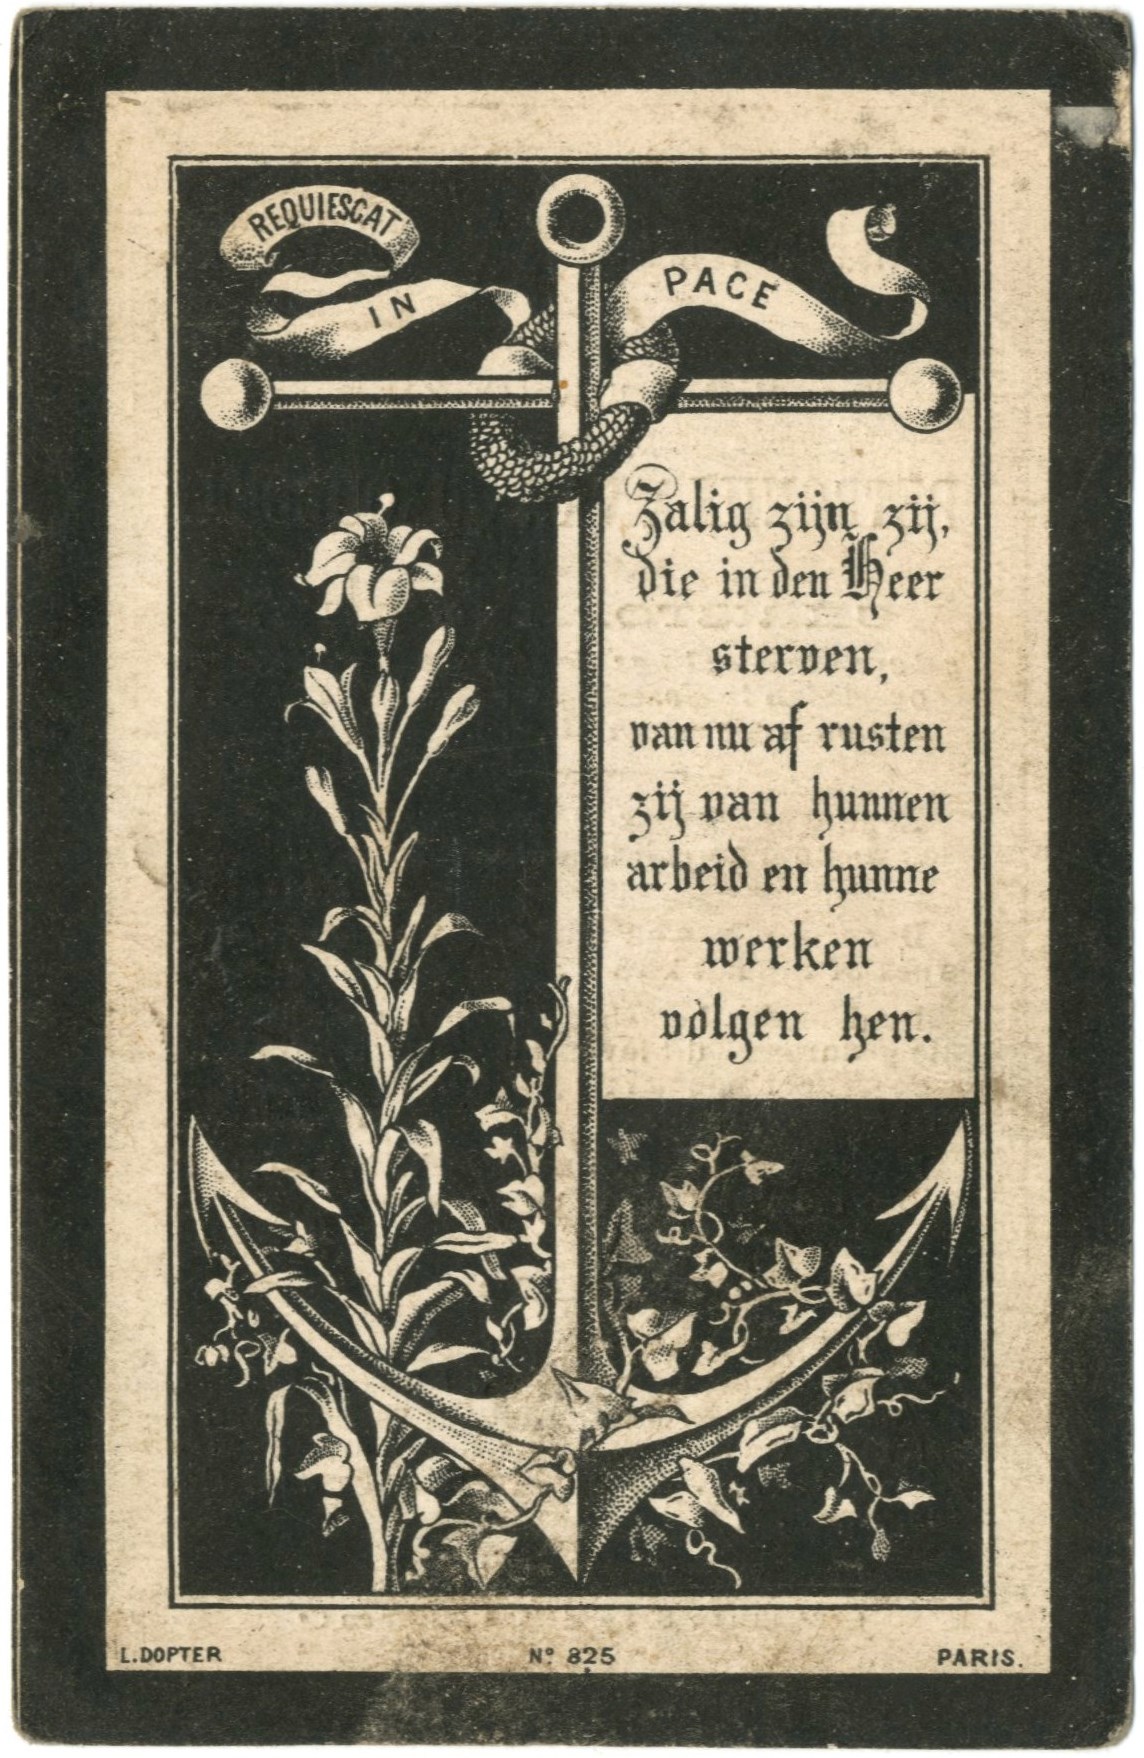 REQUIESCAT
IN
PACE
Zalig zijn zij,
die in den Heer
sterven,
van nu af rusten
zij van hunnen
arbeid en hunne
werken
volgen hen.
L. DOPTER
Nº 825
PARIS.